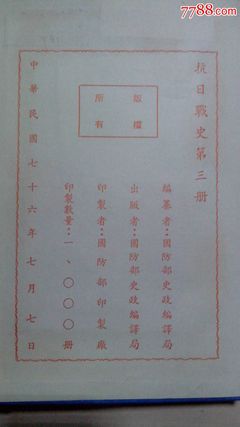 7788.com
抗日戰史第三册
版權
所有
編纂者：國防部史政編譯局
出版者：國防部史政編譯局
印製者：國防部印製廠
印製數量：一、〇〇〇册
中華民國七十六年七月七日